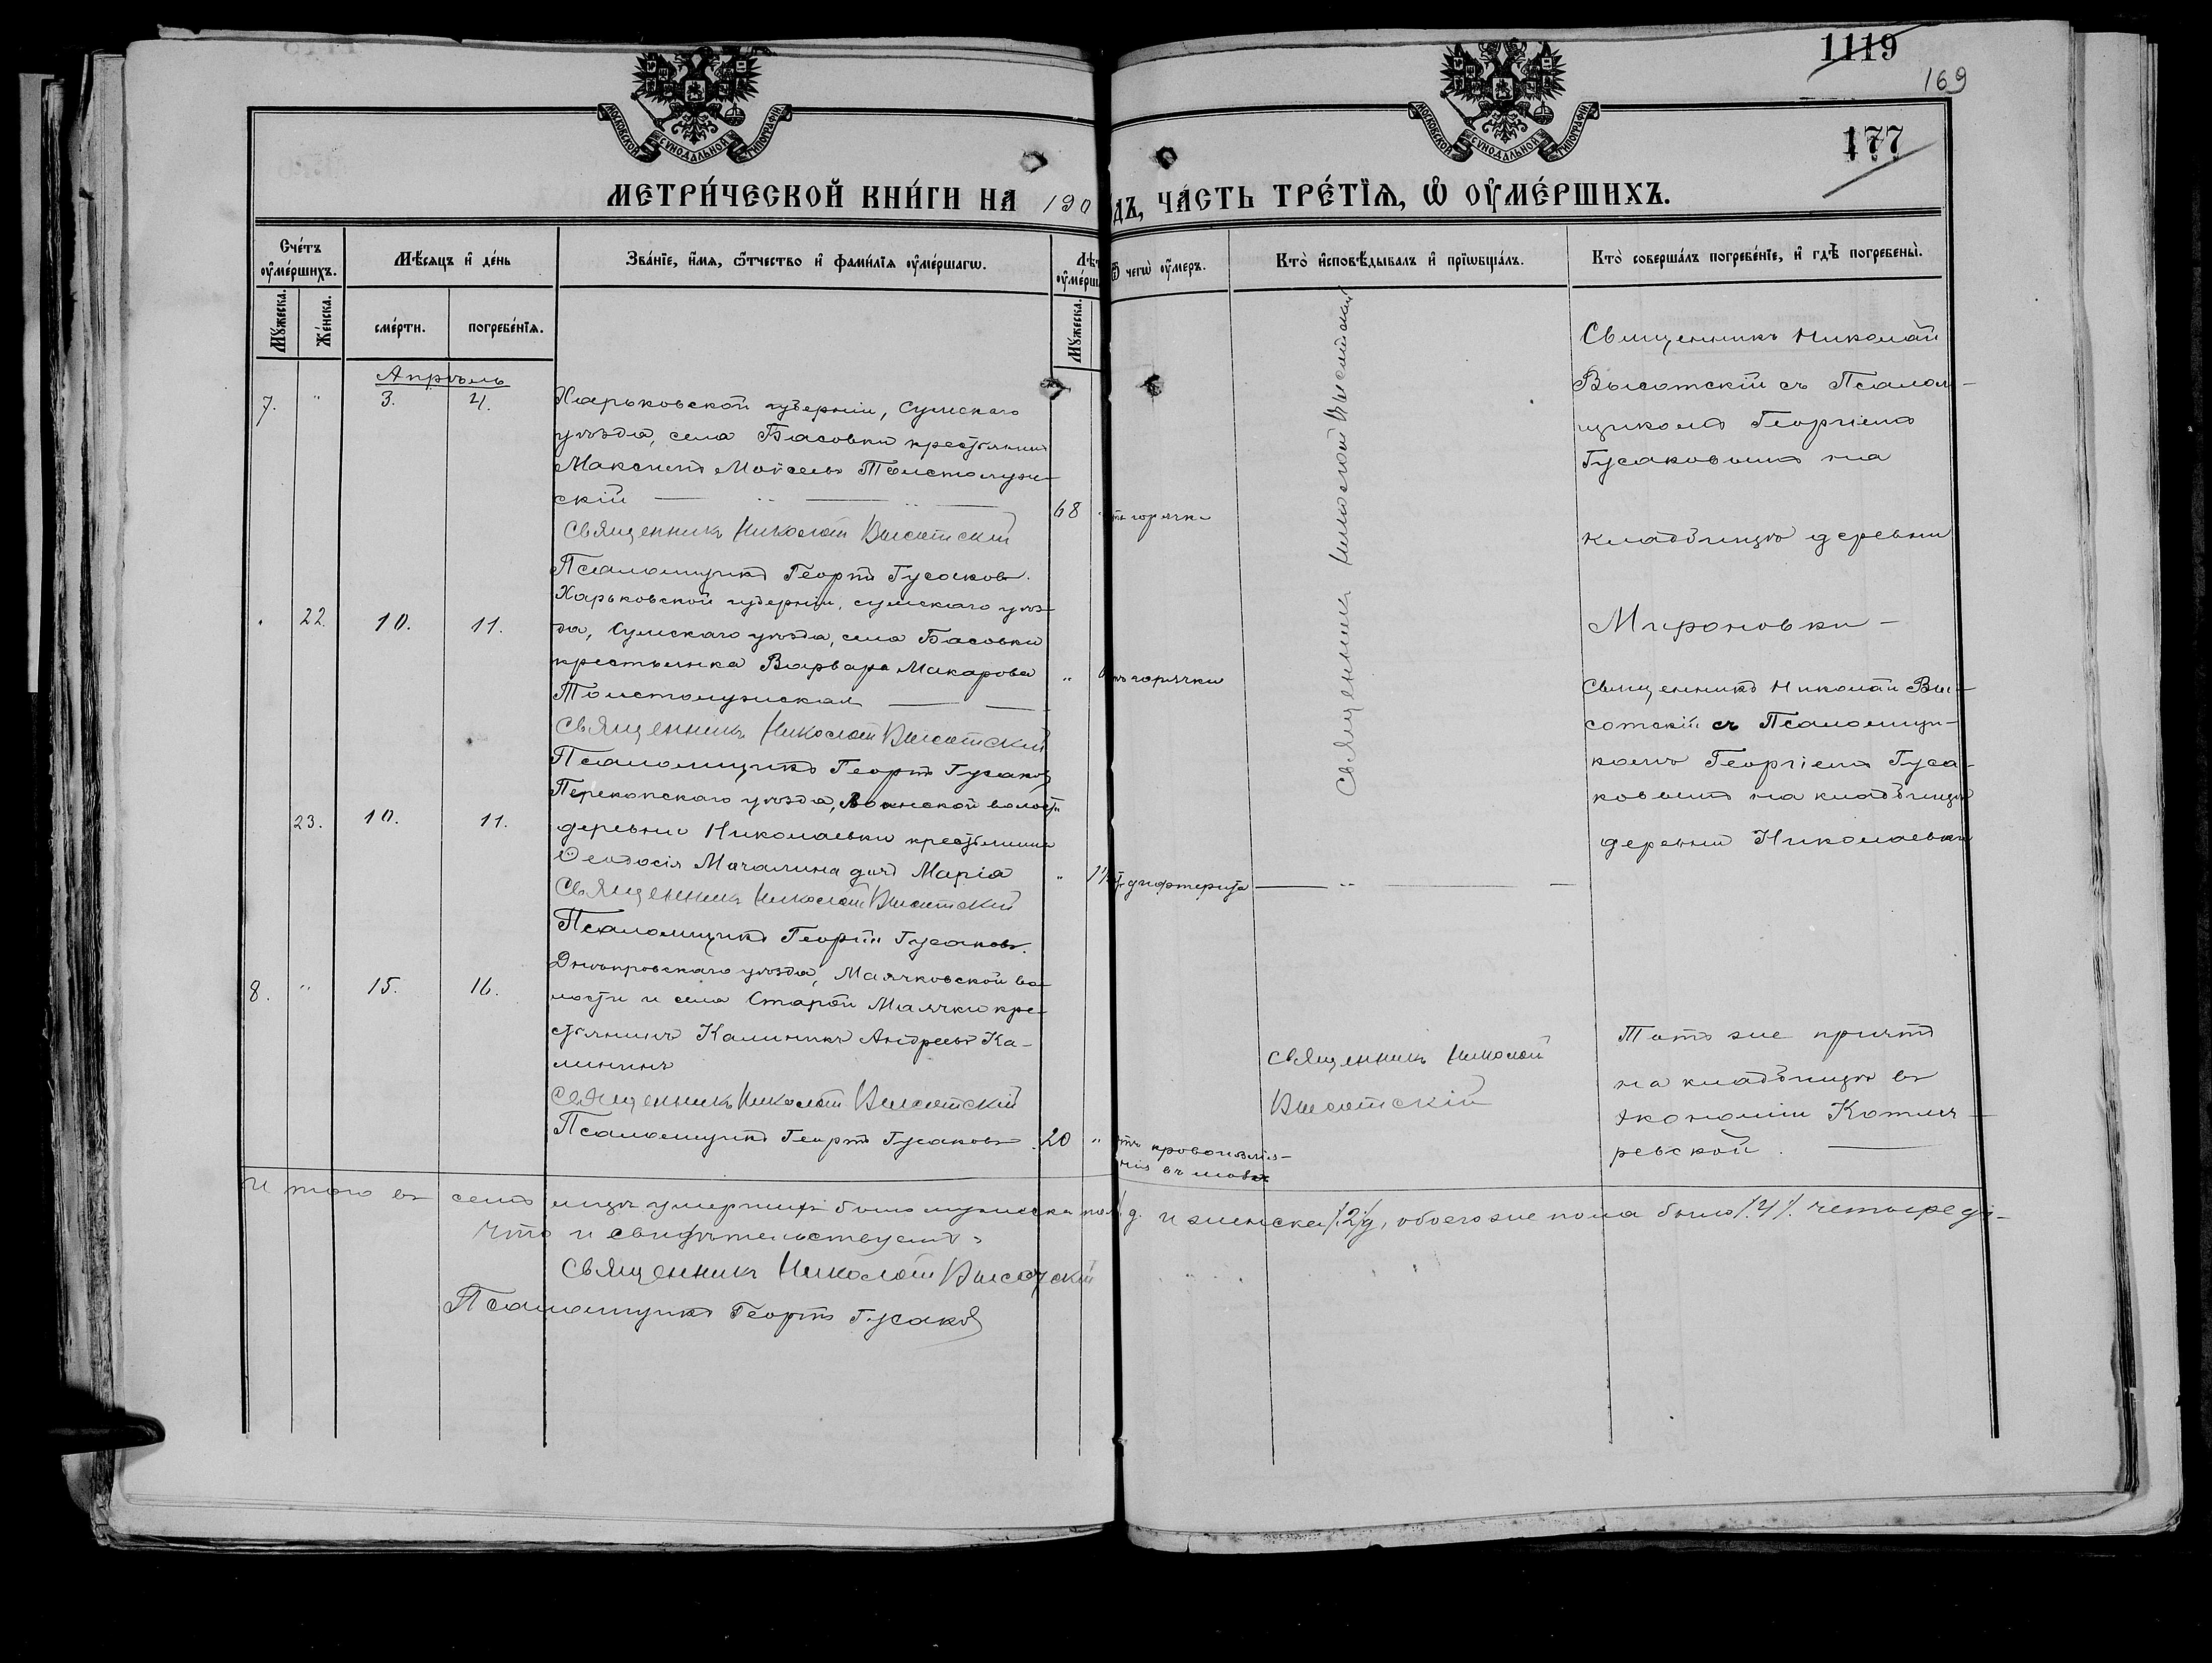 1119
169
177
МОСКОВСКОЙ СѴНОДАЛЬНОЙ ТИПОГРАФІИ
МОСКОВСКОЙ СѴНОДАЛЬНОЙ ТИПОГРАФІИ
МЕТРИ́ЧЕСКОЙ КНИ́ГИ НА 190
ДЪ, ЧА́СТЬ ТРЕ́ТЇѦ, Ѡ҆ ОУ҆МЕ́РШИХЪ.
Сче́тъ оу҆ме́ршихъ.
Мѣ́сяцъ и҆ де́нь
Зва́нїе, и҆́мя, ѻ҆́тчество и҆ фами́лїя оу҆ме́ршагѡ.
Лѣт
оу҆ме́рш
Ѿ чегѡ̀ оу҆́меръ.
Кто̀ и҆сповѣ́дывалъ и҆ прїѡбща́лъ.
Кто̀ соверша́лъ погребе́нїе, и҆ гдѣ̀ погребены̀.
Мꙋ́жеска.
Же́нска.
сме́рти.
погребе́нїя.
Мꙋ́жеска.
Апрѣль
7. " 3. 4.
Харьковской губерніи, Сумскаго
уѣзда, села Басовки крестьянинъ
Максимъ Моѵсеевъ Толстолуж-
скій
68
горячк
Священникъ Николай Высотскій
Псаломщикъ Георгій Гусаковъ.
Священникъ Николай Высотскій
Священникъ Николай
Высотскій съ Псалом-
щикомъ Георгіемъ
Гусаковымъ на
кладбищѣ деревни
Мироновки -
22. 10. 11.
Харьковской губерніи, сумскаго уѣз-
да, Сумскаго уѣзда, села Басовки
крестьянка Варвара Макарова
Толстолужская
" горячки
Священникъ Николай Высотскій
Псаломщикъ Георгій Гусаковъ
Священникъ Николай Вы-
сотскій съ Псаломщи-
комъ Георгіемъ Гуса-
ковымъ на кладбищѣ
деревни Николаевки
23. 10. 11.
Перекопскаго уѣзда, Воинской волости
деревни Николаевки крестьянина
Ѳеодосія Мачалина дочь Марія
" дифтерита
Священникъ Николай Высотскій
Псаломщикъ Георгій Гусаковъ.
8. " 15. 16.
Днѣпровскаго уѣзда, Маячковской во-
лости и села Старой Маячки кре-
стьянинъ Калиникъ Андреевъ Ка-
лининъ
Священникъ Николай Высотскій
Псаломщикъ Георгій Гусаковъ
20 "
кровоизлія-
нія въ
Священникъ Николай
Высотскій
Тотъ же причтъ
на кладбищѣ въ
экономіи Котля-
ревской.
Итого въ семъ мѣсяцѣ умершихъ было мужеска пол д. и женска /2/ д, обоего же пола было /4/. четыре д-
Что и свидѣтельствуемъ:
Священникъ Николай Высотскій
Псаломщикъ Георгій Гусаковъ